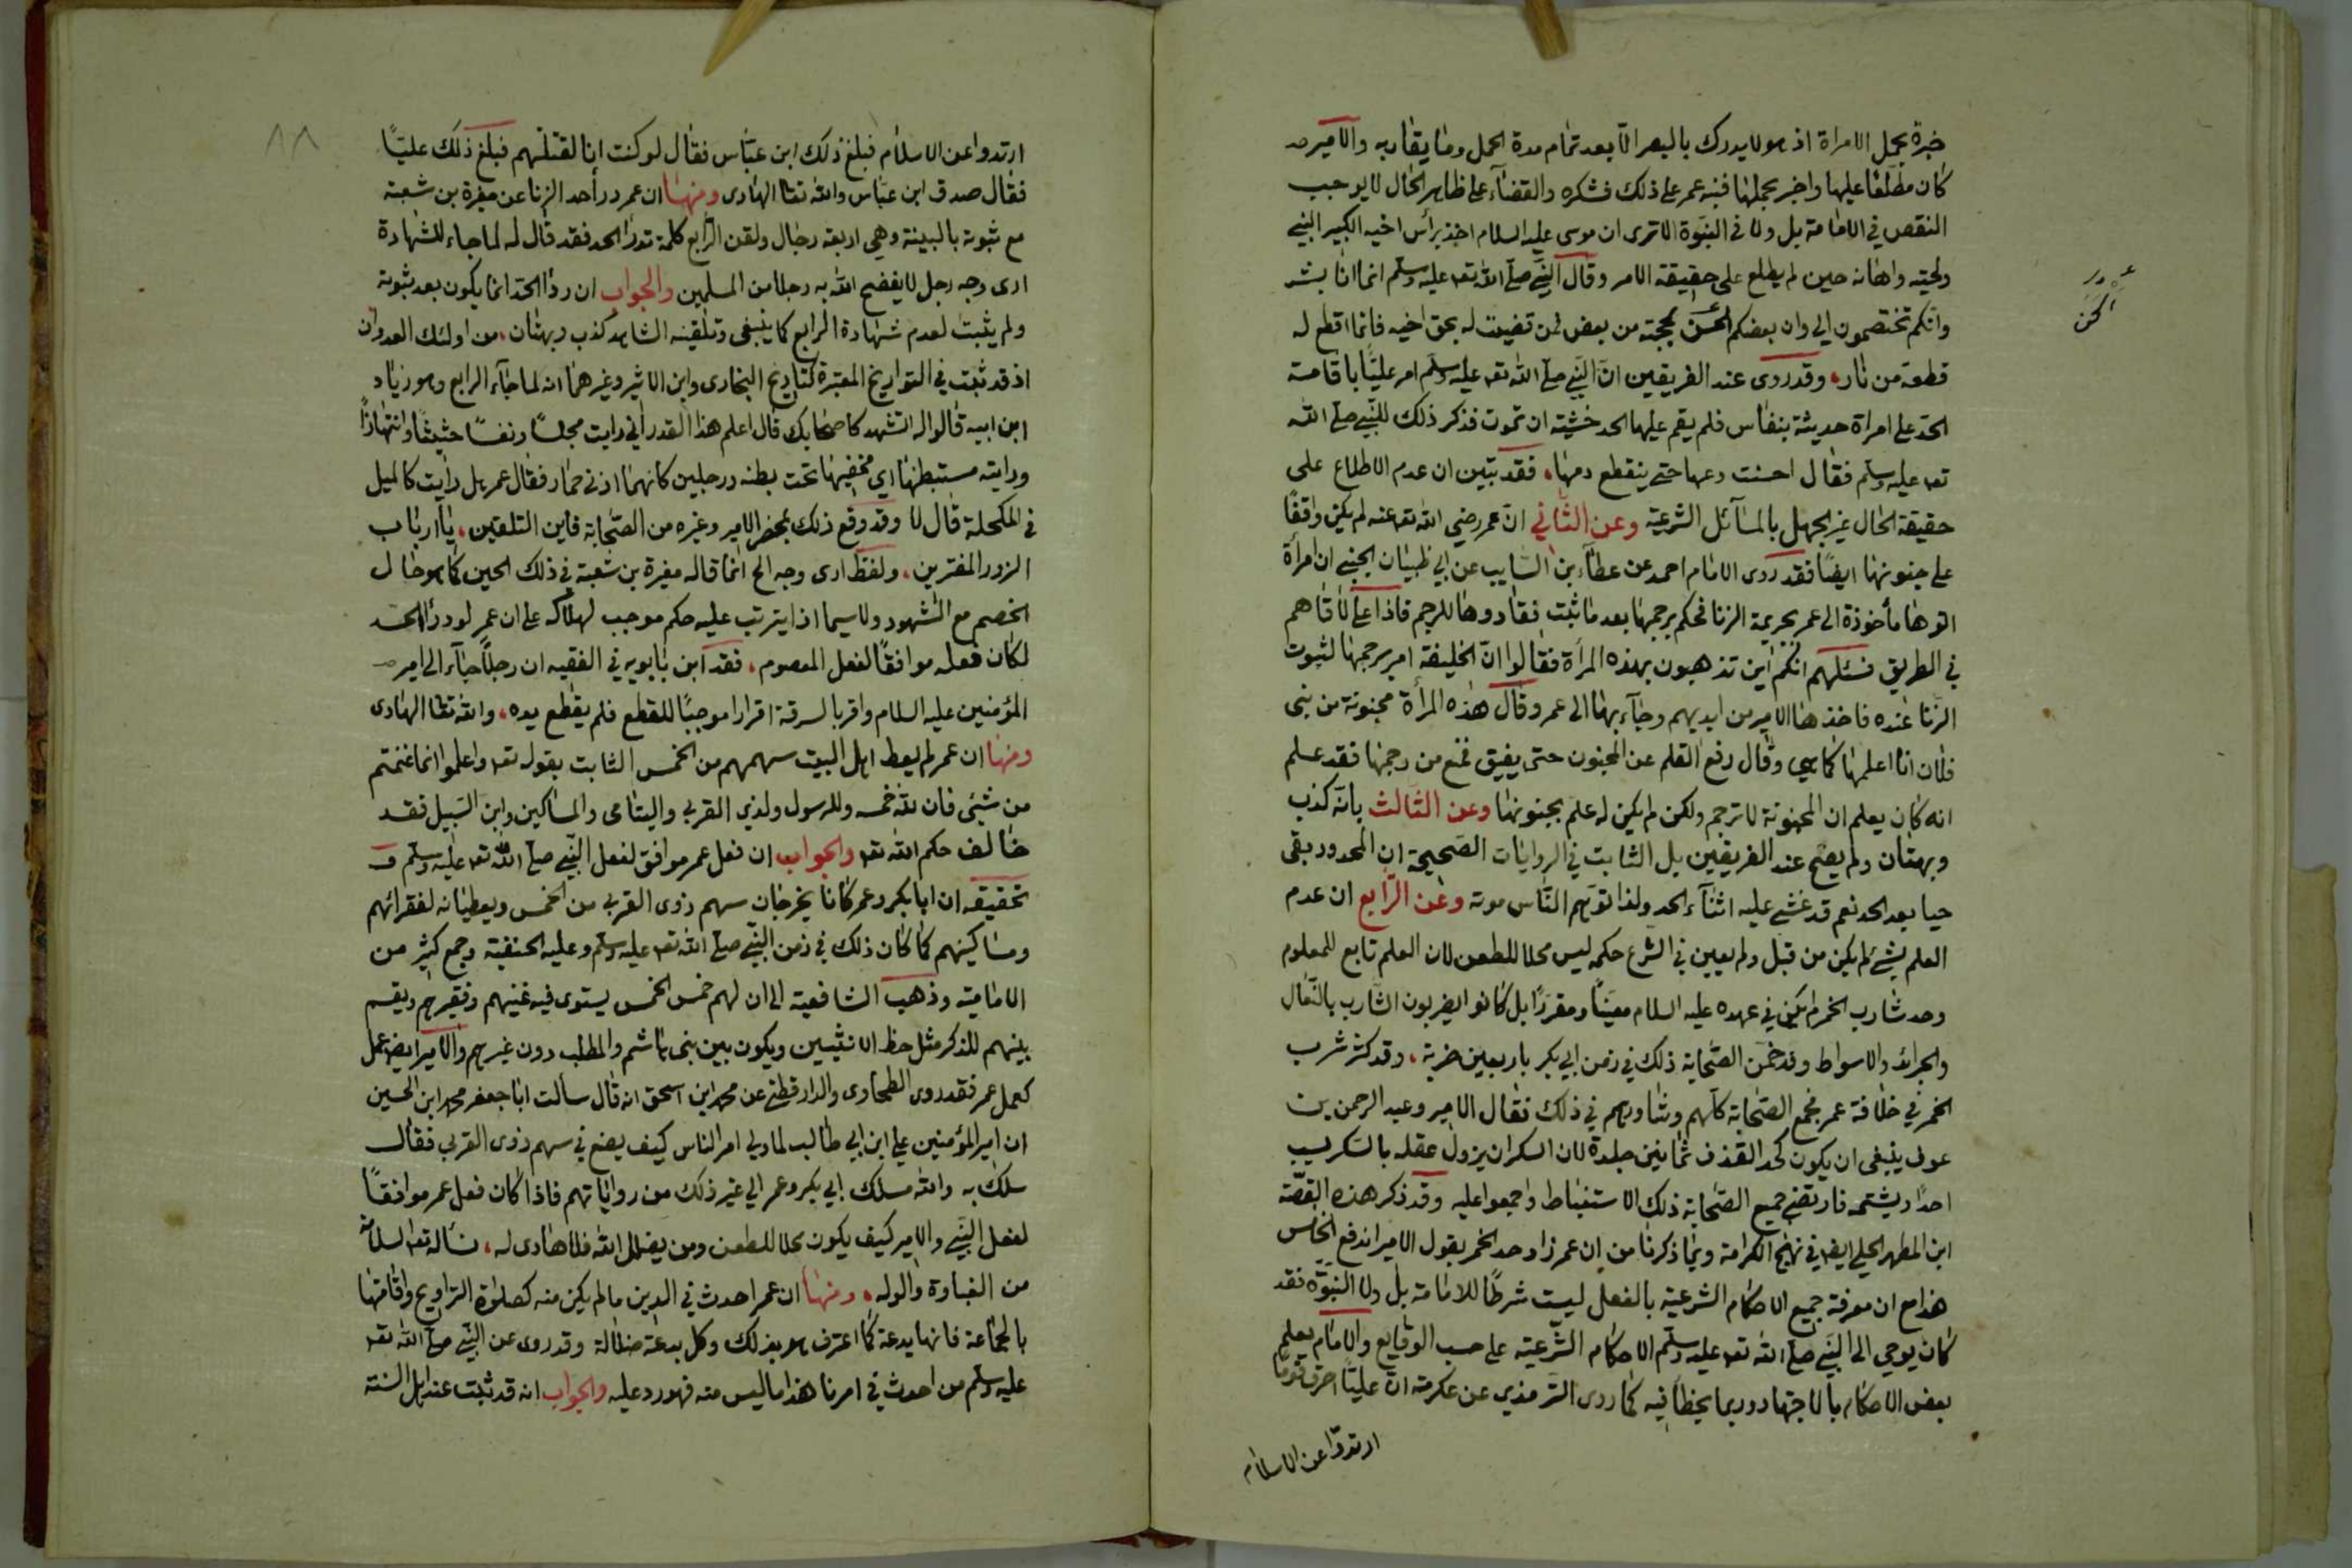 خبرة بحمل الامراة اذ هو لا يدرك بالبصر الّا بعد تمام مدة الحمل وما يقاربه والامير
كان مطلقا عليها واخبر بحملها فنبه عمر على ذلك فشكره والقضآء على ظاهر الحال لا يوجب
النقص في الامامة بل ولا في النبوّة الا ترى ان موسى عليه السلام اخذ برأس اخيه الكبير النبي
ولحيته واهانه حين لم يطلع على حقيقة الامر وقال النّبي صلى الله تعـ عليه وسلم انما انا بشر
وانكم تختصمون الي وان بعضكم الحن بحجته من بعض فمن قضيت له بحق اخيه فانما اقطع له
الحن
قطعة من نار، وقد روى عند الفريقين انّ النّبي صلى الله تعـ عليه وسلم امر عليّا باقامة
الحدّ على امراة حديثة بنفاس فلم يقم عليها الحد خشية ان تموت فذكر ذلك للنّبي صلى الله
تعـ عليه وسلم فقال احسنت دعها حتى ينقطع دمها، فقد تبين ان عدم الاطلاع على
حقيقة الحال غير الجهل بالمسآئل الشرعيّة وعن الثّاني انّ عمر رضي الله تعـ عنه لم يكن واقفًا
على جنونها ايضًا فقد روى الامام احمد عن عطآء بن السّايب عن ابي ظبيان الجنبي ان امرأة
اتوا بها مأخوذة الى عمر بجريمة الزنا فحكم برجمها بعد ما ثبت فقادوها للرجم فاذا علي لاقاهم
في الطريق فسئلهم انكم اين تذهبون بهذه المرأة فقالوا انّ الخليفة امر برجمها لثبوت
الزّنا عنده فاخذها الامير من ايديهم وجآء بها الى عمر وقال هذه المرأة مجنونة من بنى
فلان انا اعلمها كما هي وقال رفع القلم عن المجنون حتى يفيق فمنع من رجمها فقد علم
انه كان يعلم ان المجنونة لا ترجم ولكن لم يكن له علم بجنونها وعن الثّالث بانّه كذب
وبهتان ولم يصحّ عند الفريقين بل الثابت في الروايات الصّحيحة ان المحدود بقى
حيا بعد الحد نعم قد غشي عليه اثنآء الحد ولذا توهّم النّاس موته وعن الرّابع ان عدم
العلم بشئ لم يكن من قبل ولم يعين في الشرع حكمه ليس محلا للطعن لان العلم تابع للمعلوم
وحد شارب الخمر لم يكن في عهده عليه السلام معيّنًا ومقررًا بل كانوا يضربون الشّارب بالنّعال
والجرائد والاسواط وقد خمّن الصّحابة ذلك في زمن ابي بكر باربعين ضربة، وقد كثر شرب
الخمر في خلافة عمر فجمع الصّحابة كلّهم وشاورهم في ذلك فقال الامير وعبد الرحمن بن
عوف ينبغى ان يكون كحد القذف ثمانين جلدة لان السكران يزول عقله بالسّكر يسب
احدًا ويشتمه فارتضى جميع الصّحابة ذلك الاستنباط واجمعوا عليه وقد ذكر هذه القصّة
ابن المطهر الحلي ايضـ في نهج الكرامة وبما ذكرنا من ان عمر زاد حد الخمر بقول الامير اندفع الخامس
هذا مع ان معرفة جميع الاحكام الشرعيّة بالفعل ليست شرطًا للامامة بل ولا النبوّة فقد
كان يوحي الى النّبي صلى الله تعـ عليه وسلم الاحكام الشّرعيّة على حسب الوقايع والامام يعلم
بعض الاحكام بالاجتهاد وربما يخطأ فيه كما روى التّرمذي عن عكرمة انّ عليّا احرق قومًا
ارتدوا عن الاسلام
٨٨
ارتدوا عن الاسلام فبلغ ذلك ابن عبّاس فقال لو كنت انا لقتلتهم فبلغ ذلك عليّا
فقال صدق ابن عبّاس والله تعا الهادى ومنها ان عمر درأ حد الزنا عن مغيرة بن شعبة
مع ثبوته بالبينة وهي اربعة رجال ولقن الرّابع كلمة تدرأ الحد فقد قال له لما جاء للشهادة
ارى وجه رجل لا يفضح الله به رجلا من المسلمين والجواب ان درأ الحدّ انما يكون بعد ثبوته
ولم يثبت لعدم شهادة الرابع كما ينبغى وتلقينه الشاهد كذب وبهتان، من اولئك العدوان
اذ قد ثبت في التواريخ المعتبرة كتاريخ البخارى وابن الاثير وغيرهما انه لما جآء الرابع وهو زياد
ابن ابيه قالوا له اتشهد كاصحابك قال اعلم هذا القدر اني رايت مجلسًا ونفسًا حثيثًا وانتهازًا
ورايته مستبطنها اي مخفيها تحت بطنه ورجلين كانهما اذنى حمار فقال عمر هل رايت كالميل
في المكحلة قال لا وقد وقع ذلك بمحضر الامير وغيره من الصّحابة فاين التلقين، يا ارباب
الزور المفترين، ولفظ ارى وجه الخ انما قاله مغيرة بن شعبة في ذلك الحين كما هو حال
الخصم مع الشهود ولا سيما اذا يترتب عليه حكم موجب لهلاكه على ان عمر لو درأ الحد
لكان فعله موافقًا لفعل المعصوم، فقد ابن بابويه في الفقيه ان رجلًا جآء الى امير
المؤمنين عليه السلام واقر بالسرقة اقرارا موجبًا للقطع فلم يقطع يده، والله تعا الهادى
ومنها ان عمر لم يعط اهل البيت سهمهم من الخمس الثابت بقوله تعـ واعلموا انما غنمتم
من شيئ فان لله خمسه وللرسول ولذي القربى واليتامى والمساكين وابن السّبيل فقد
خالف حكم الله تعـ والجواب ان فعل عمر موافق لفعل النّبي صلى الله تعـ عليه وسلم
تحقيقه ان ابا بكر وعمر كانا يخرجان سهم ذوى القربى من الخمس ويعطيانه لفقرائهم
ومساكينهم كما كان ذلك في زمن النّبي صلى الله تعـ عليه وسلم وعليه الحنفية وجمع كثير من
الامامية وذهب الشافعية الى ان لهم خمس الخمس يستوى فيه غنيهم وفقيرهم ويقسم
بينهم للذكر مثل حظ الانثيين ويكون بين بنى هاشم والمطلب دون غيرهم والامير ايضـ عمل
كعمل عمر فقد روى الطحاوى والدارقطني عن محمد ابن اسحق انه قال سألت ابا جعفر محمد ابن الحسين
ان امير المؤمنين علي ابن ابي طالب لما ولي امر الناس كيف يصنع في سهم ذوى القربى فقال
سلك به والله مسلك ابي بكر وعمر الى غير ذلك من رواياتهم فاذا كان فعل عمر موافقًا
لفعل النّبي والامير كيف يكون محلا للطعن ومن يضلل الله فلا هادى له، نسأله تعـ السلامة
من الغباوة والوله، ومنها ان عمر احدث في الدين ما لم يكن منه كصلوٰة التراويح واقامتها
بالجماعة فانها بدعة كما اعترف هو بذلك وكل بدعة ضلالة وقد روى عن النّبي صلى الله تعـ
عليه وسلم من احدث في امرنا هذا ما ليس منه فهو رد عليه والجواب انه قد ثبت عند اهل السنة